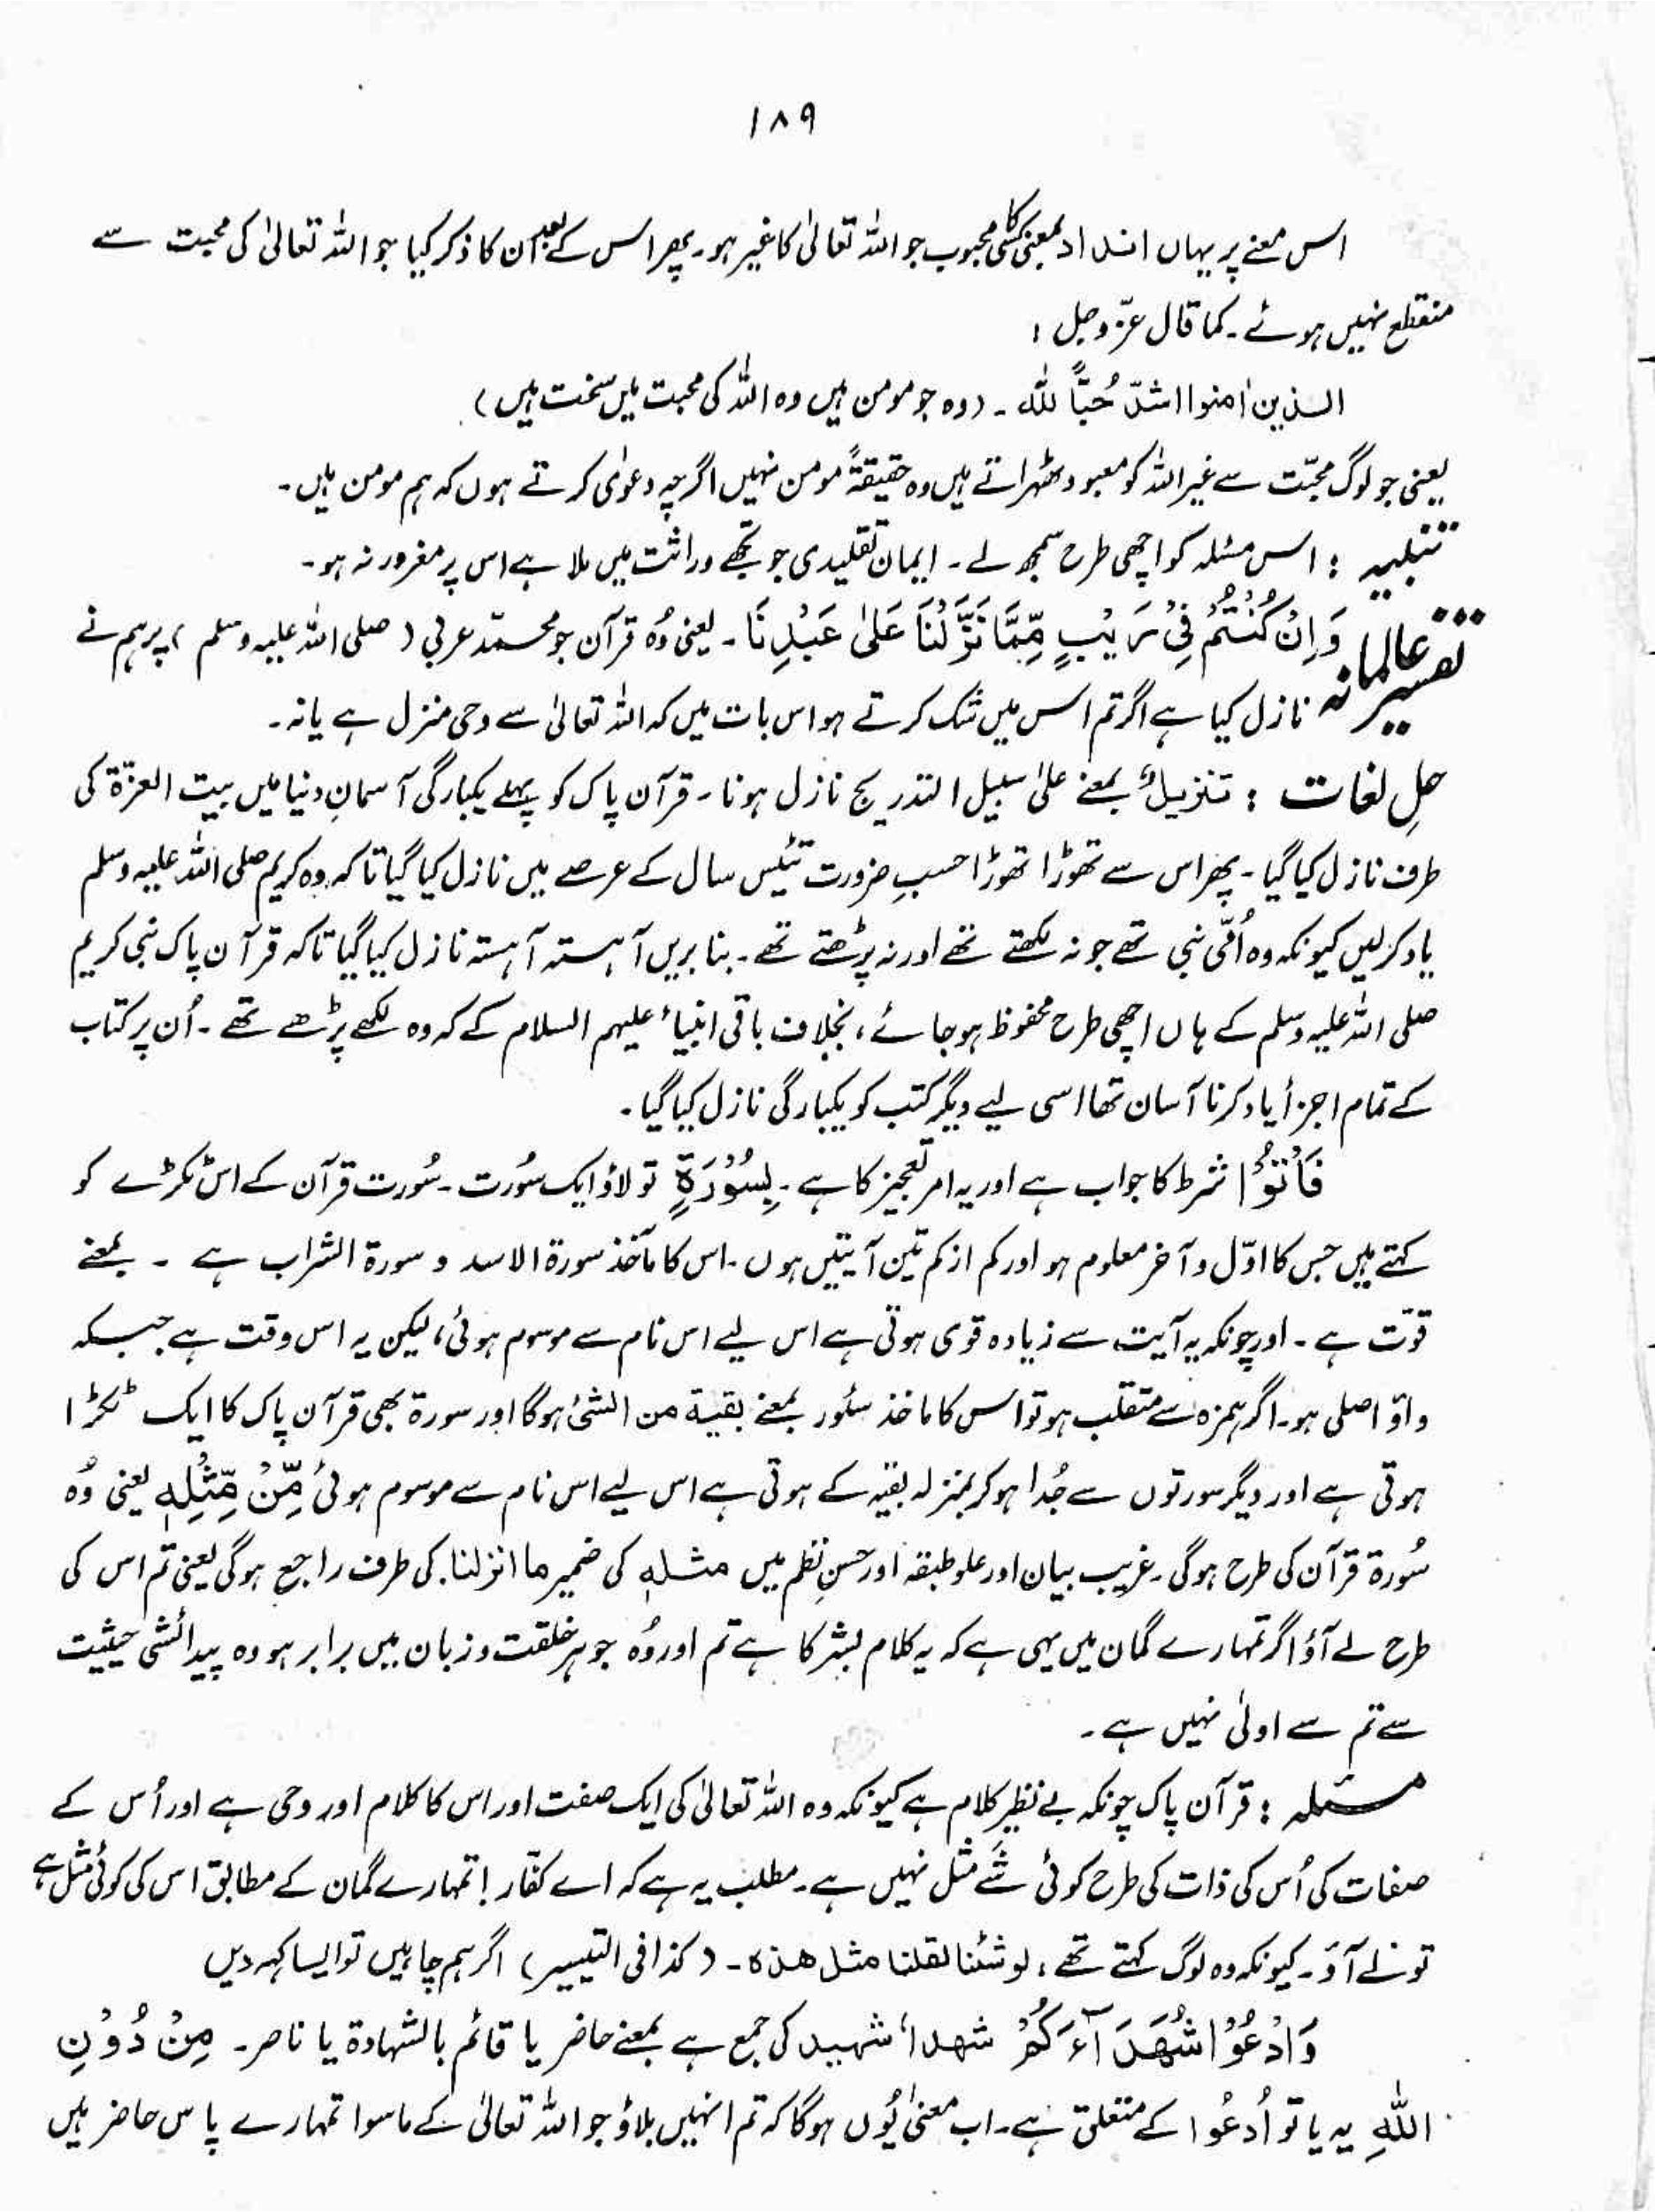 ۱۸۹
اس معنے پر یہاں انداد بمعنی کسی کا محبوب جو اللہ تعالیٰ کا غیر ہو۔ پھر اس کے بعد اُن کا ذکر کیا جو اللہ تعالیٰ کی محبت سے
منقطع نہیں ہوئے۔ کما قال عزّ و جل :
الذین اٰمنوا اشدّ حُبًّا للّٰہ ۔ (وہ جو مومن ہیں وہ اللہ کی محبت میں سخت ہیں)
یعنی جو لوگ محبّت سے غیر اللہ کو معبود ٹھہراتے ہیں وہ حقیقۃً مومن نہیں اگرچہ دعوٰی کرتے ہوں کہ ہم مومن ہیں۔
تنبیہ : اس مسئلہ کو اچھی طرح سمجھ لے ۔ ایمان تقلیدی جو تجھے وراثت میں ملا ہے اس پر مغرور نہ ہو۔
تفسیر عالمانہ وَاِنْ كُنْتُمْ فِیْ رَیْبٍ مِّمَّا نَزَّلْنَا عَلٰی عَبْدِنَا ۔ یعنی وُہ قرآن جو محمّد عربی (صلی اللہ علیہ وسلم) پر ہم نے
نازل کیا ہے اگر تم اس میں شک کرتے ہو اس بات میں کہ اللہ تعالیٰ سے وحی منزل ہے یا نہ۔
حلِ لغات : تنزیلٌ بمعنے علیٰ سبیل التدریج نازل ہونا۔ قرآن پاک کو پہلے یکبارگی آسمانِ دنیا میں بیت العزّۃ کی
طرف نازل کیا گیا۔ پھر اس سے تھوڑا تھوڑا حسبِ ضرورت تئیس سال کے عرصے میں نازل کیا گیا تا کہ وہ کریم صلی اللہ علیہ وسلم
یاد کر لیں کیونکہ وہ اُمّی نبی تھے جو نہ لکھتے تھے اور نہ پڑھتے تھے۔ بنا بریں آہستہ آہستہ نازل کیا گیا تاکہ قرآن پاک نبی کریم
صلی اللہ علیہ وسلم کے ہاں اچھی طرح محفوظ ہو جائے، بخلاف باقی انبیاء علیہم السلام کے کہ وہ لکھے پڑھے تھے ۔ اُن پر کتاب
کے تمام اجزأ یاد کرنا آسان تھا اسی لیے دیگر کتب کو یکبارگی نازل کیا گیا ۔
فَاْتُوْا شرط کا جواب ہے اور یہ امر تعجیز کا ہے ۔ بِسُوْرَةٍ تو لاؤ ایک سُورت ۔ سُورت قرآن کے اس ٹکڑے کو
کہتے ہیں جس کا اوّل و آخر معلوم ہو اور کم از کم تین آیتیں ہوں ۔ اس کا مآخذ سورة الاسد و سورة الشراب ہے ۔ بمعنے
قوّت ہے ۔ اور چونکہ یہ آیت سے زیادہ قوی ہوتی ہے اس لیے اس نام سے موسوم ہوئی، لیکن یہ اس وقت ہے جبکہ
واؤ اصلی ہو۔ اگر ہمزہ سے متقلب ہو تو اس کا ماخذ سئور بمعنے بقیة من الشئ ہوگا اور سورۃ بھی قرآن پاک کا ایک ٹکڑا
ہوتی ہے اور دیگر سورتوں سے جُدا ہو کر بمنزلہ بقیہ کے ہوتی ہے اس لیے اس نام سے موسوم ہوئی مِّنْ مِّثْلِهٖ یعنی وُہ
سُورۃ قرآن کی طرح ہوگی ۔ غریب بیان اور علو طبقہ اور حسنِ نظم میں مثلہٖ کی ضمیر ما انزلنا کی طرف راجع ہوگی یعنی تم اس کی
طرح لے آؤ اگر تمہارے گمان میں یہی ہے کہ یہ کلام بشر کا ہے تم اور وُہ جوہر خلقت و زبان میں برابر ہو وہ پیدائشی حیثیت
سے تم سے اولیٰ نہیں ہے ۔
مسئلہ : قرآن پاک چونکہ بے نظیر کلام ہے کیونکہ وہ اللہ تعالیٰ کی ایک صفت اور اس کا کلام اور وحی ہے اور اُس کے
صفات کی اُس کی ذات کی طرح کوئی شَے مثل نہیں ہے۔ مطلب یہ ہے کہ اے کفّار ! تمہارے گمان کے مطابق اس کی کوئی مثل ہے
تو لے آؤ۔ کیونکہ وہ لوگ کہتے تھے، لو شئنا لقلنا مثل ھذا ۔ (کذا فی التیسیر) اگر ہم چاہیں تو ایسا کہہ دیں
وَادْعُوْا شُهَدَآءَكُمْ شھدأ شہید کی جمع ہے بمعنے حاضر یا قائم بالشہادۃ یا ناصر۔ مِنْ دُوْنِ
اللّٰهِ یہ یا تو اُدعُوا کے متعلق ہے۔ اب معنیٰ یُوں ہوگا کہ تم انہیں بلاؤ جو اللہ تعالیٰ کے ماسوا تمہارے پاس حاضر ہیں